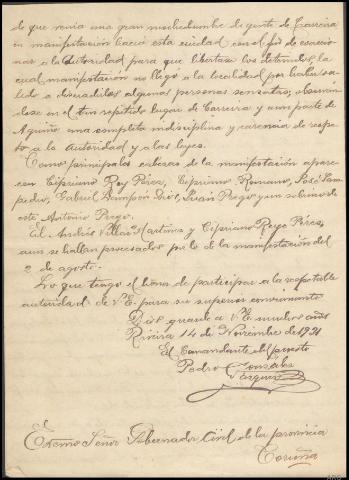 de que venia una gran muchedumbre de gente de Carreira
en manifestación hacia esta ciudad con el fin de coaccionar
a la Autoridad para que libertase los detenidos, la
cual manifestación no llegó a la localidad por haber sa-
lido a disuadirlos algunas personas sensatas, observán-
dose en el tan repetido lugar de Carreira y una parte de
Aguiño una completa indisciplina y carencia de respe-
to a la Autoridad y a las leyes.
Como principales cabezas de la manifestación apare-
cen Cipriano Rey Pérez, Cipriano Romano, José Sam-
pedro, Gabriel Sampedro, Juan Prego y un sobrino de
este Antonio Prego.
El Andrés Villar Martínez y Cipriano Rey Pérez,
aun se hallan procesados por lo de la manifestación del
2 de agosto.
Lo que tengo el honor de participar a la respetable
autoridad de V.E. para su superior conocimiento
Dios guarde a V.E. muchos años
Riveira 14 de Noviembre de 1921
El Comandante del puesto
Pedro Gonzalez
Vazquez
Excmo Señor Gobernador Civil de la provincia
Coruña